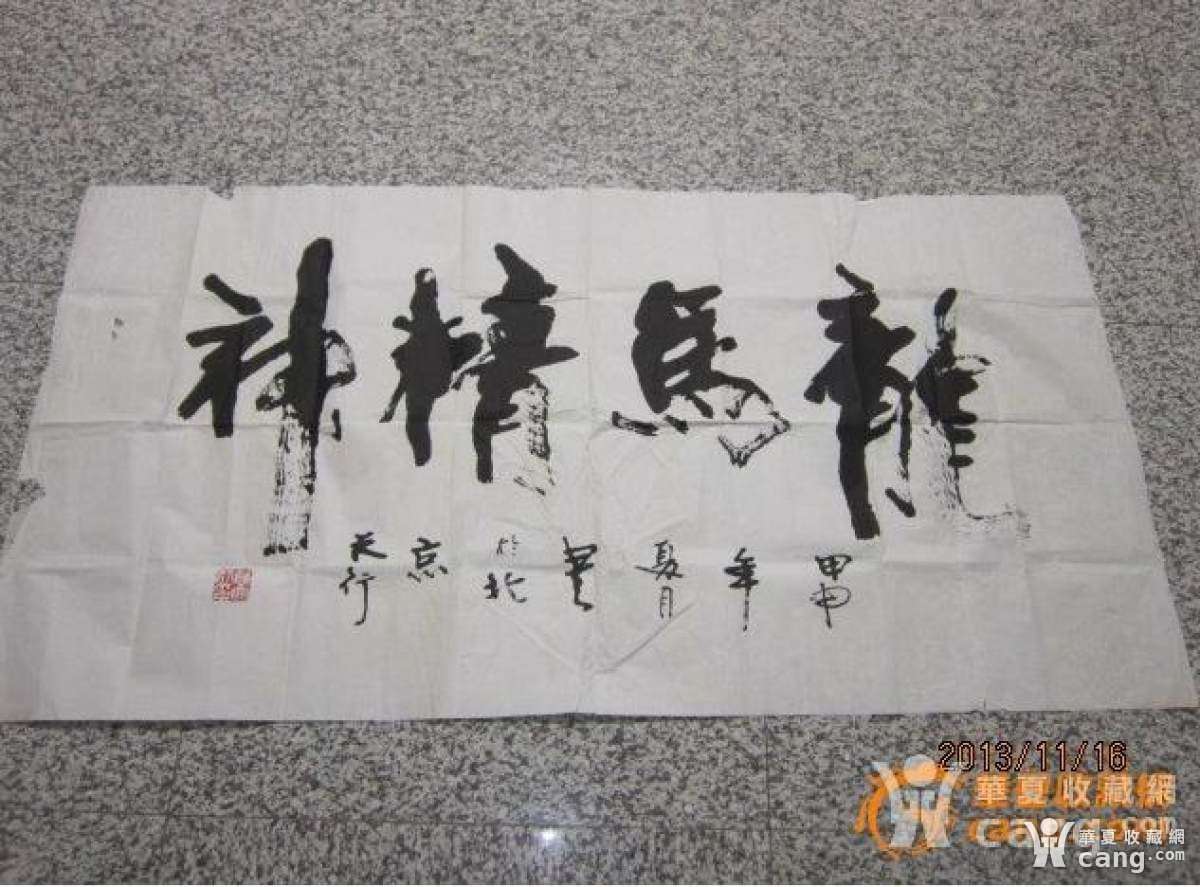 龍馬精神
甲申年夏月書於北京天行
2013/11/16
華夏收藏網
cang.com
華夏收藏網
cang.com